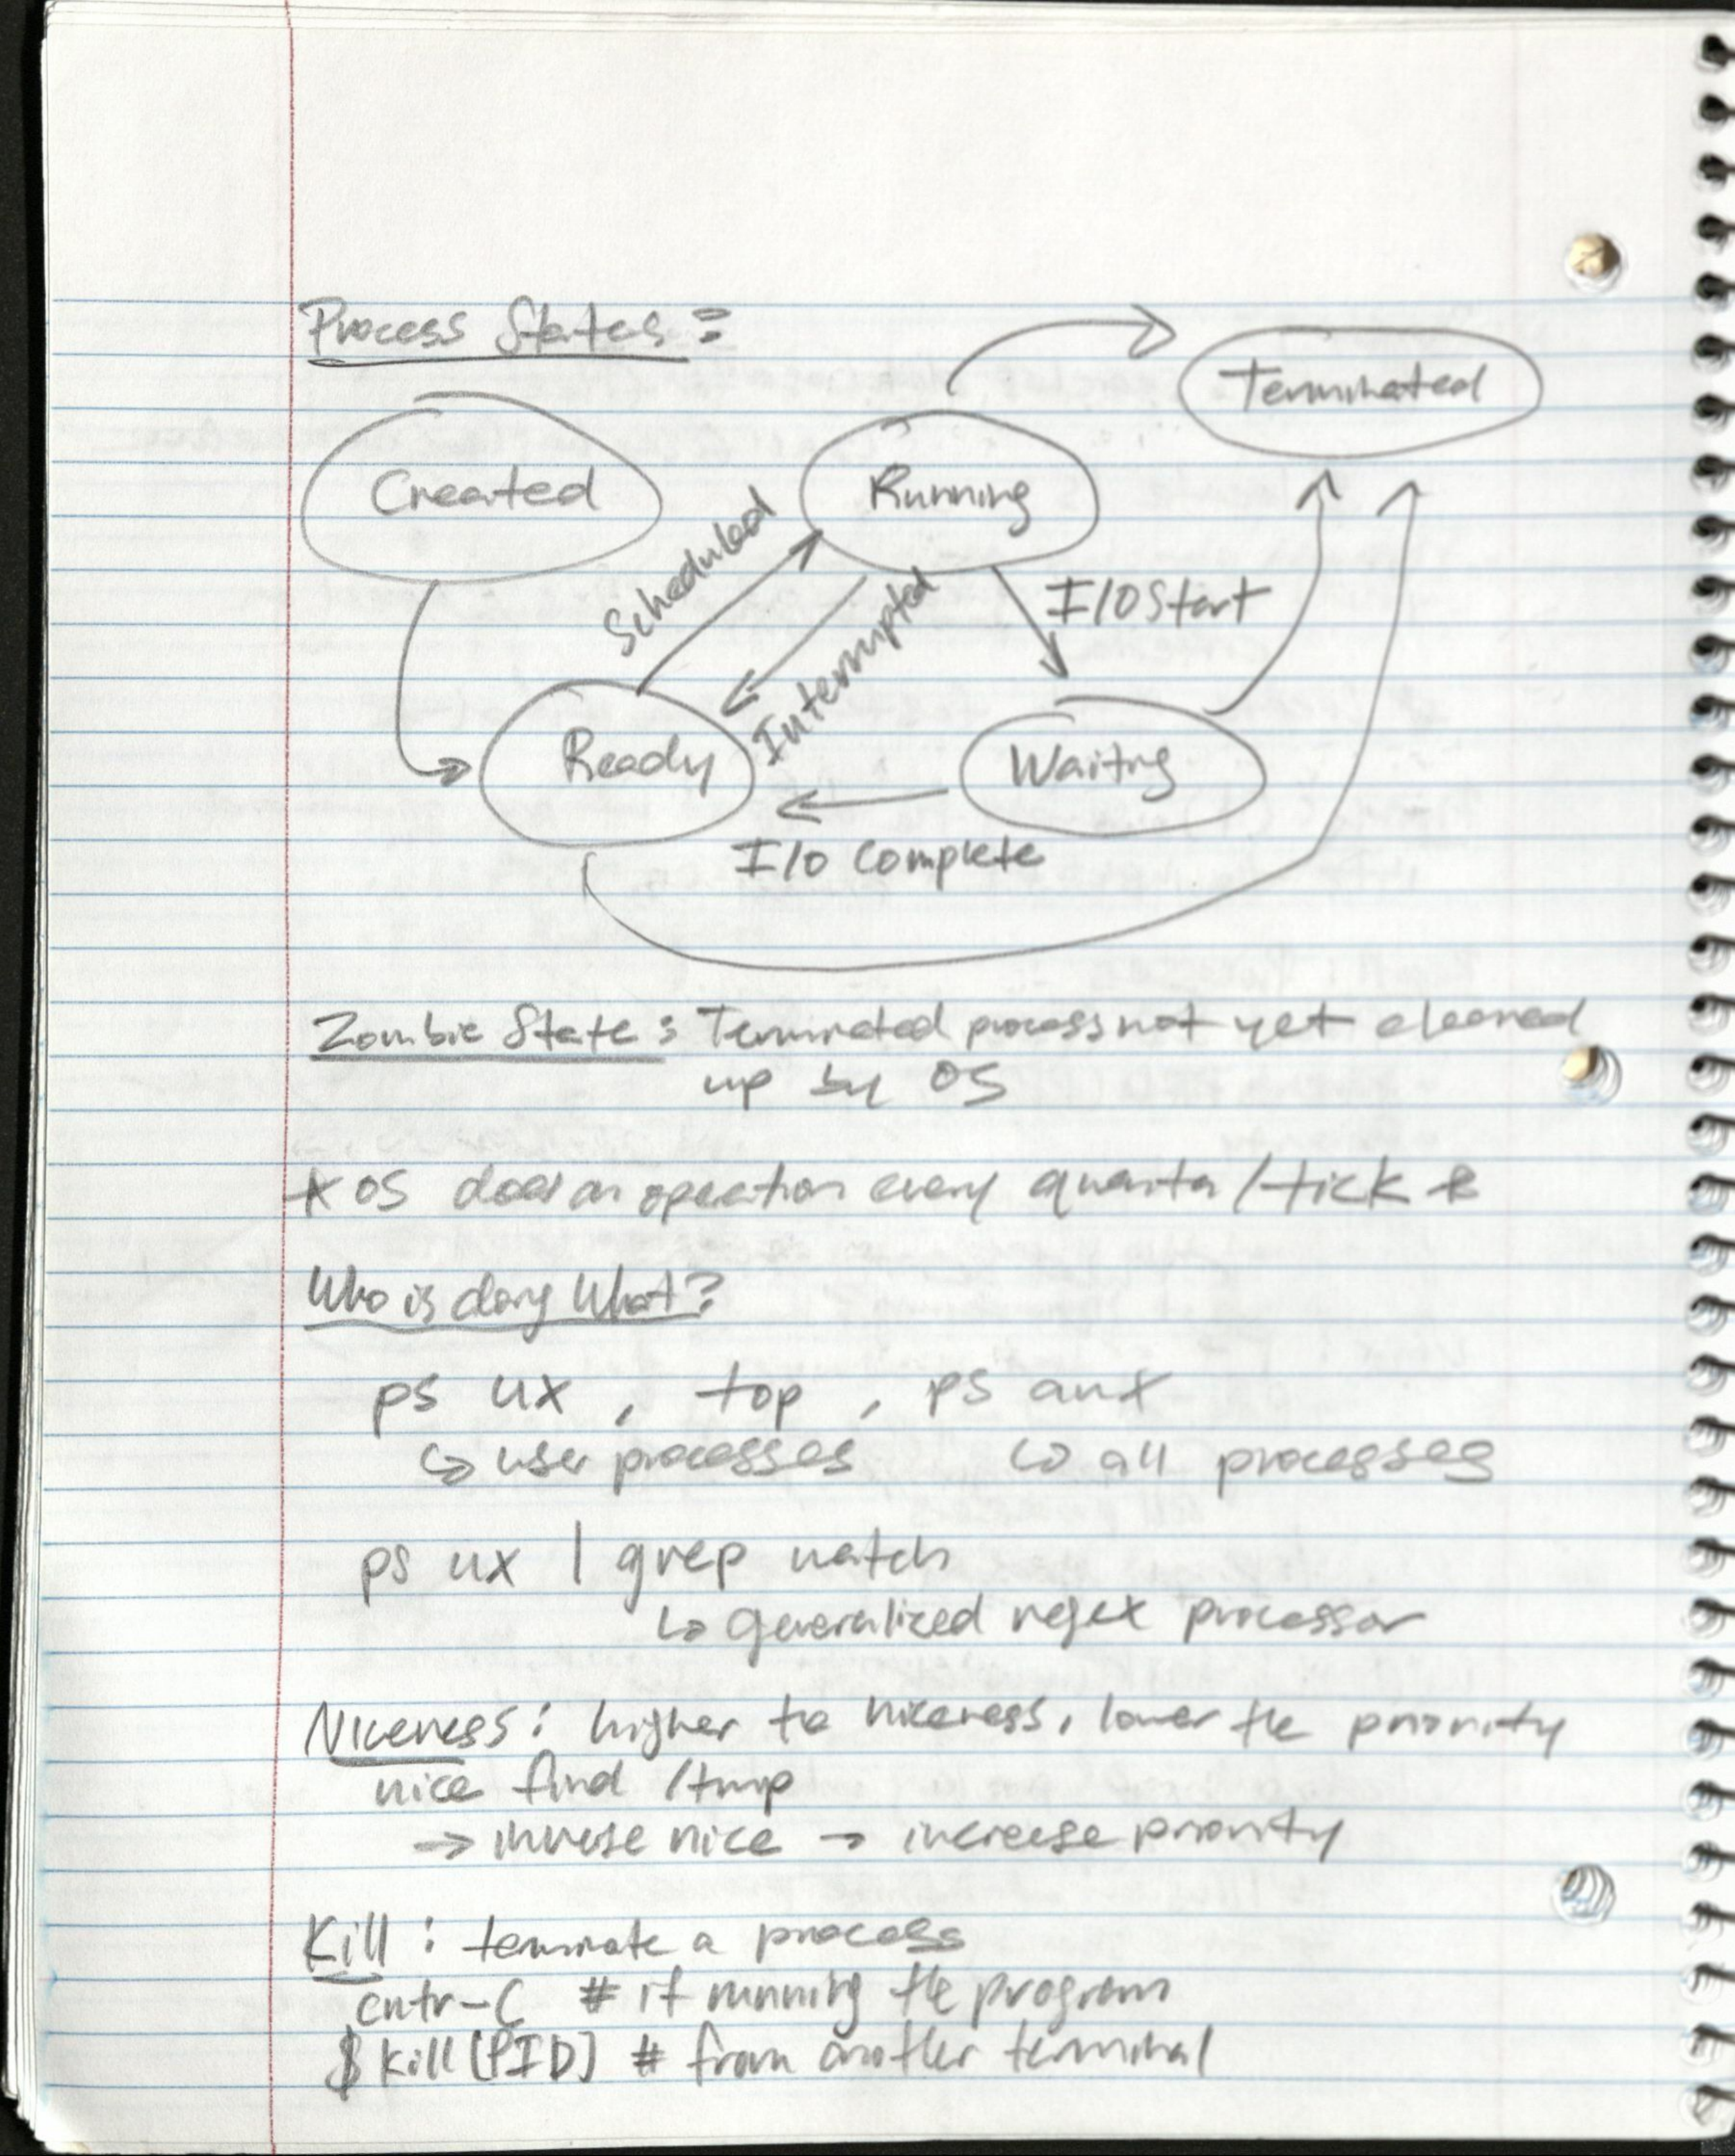 Process States:
Terminated
Created
Running
Scheduled
Interrupted
I/O Start
Ready
Waiting
I/O Complete
Zombie State: Terminated process not yet cleaned
up by OS
* OS does an operation every quanta/tick *
Who is doing What?
ps ux, top, ps aux
↳ user processes ↳ all processes
ps ux | grep watch
↳ generalized regex processor
Niceness: higher the niceness, lower the priority
nice find /tmp
→ inverse nice → increase priority
Kill: terminate a process
cntr-C # if running the program
$ kill [PID] # from another terminal